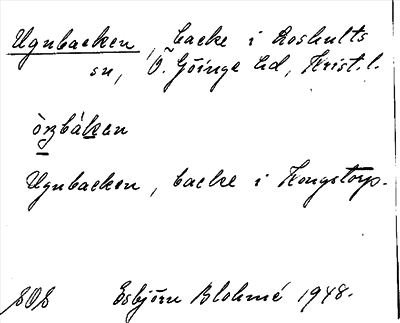 Ugnbacken, backe i Loshults
sn, Ö. Göinge hd, Krist. l.
Ugnbacken, backe i Kongstorp.
SOS Esbjörn Blohmé 1948.